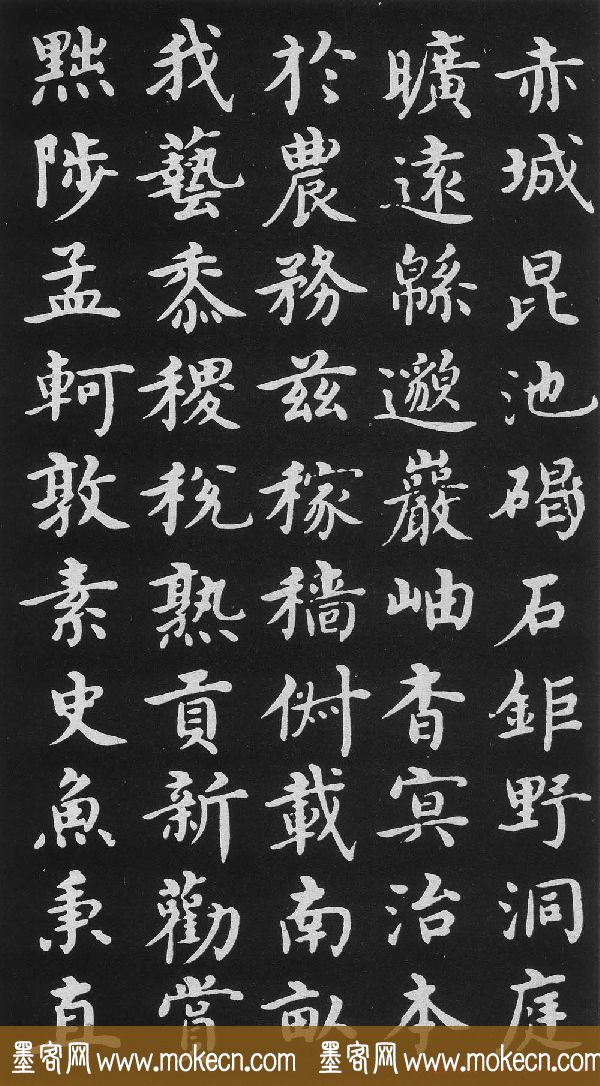 赤城昆池碣石鉅野洞庭
曠遠緜邈巖岫杳冥治本
於農務茲稼穡俶載南畝
我藝黍稷稅熟貢新勸賞
黜陟孟軻敦素史魚秉直
墨客网 www.mokecn.com 墨客网 www.mokecn.com